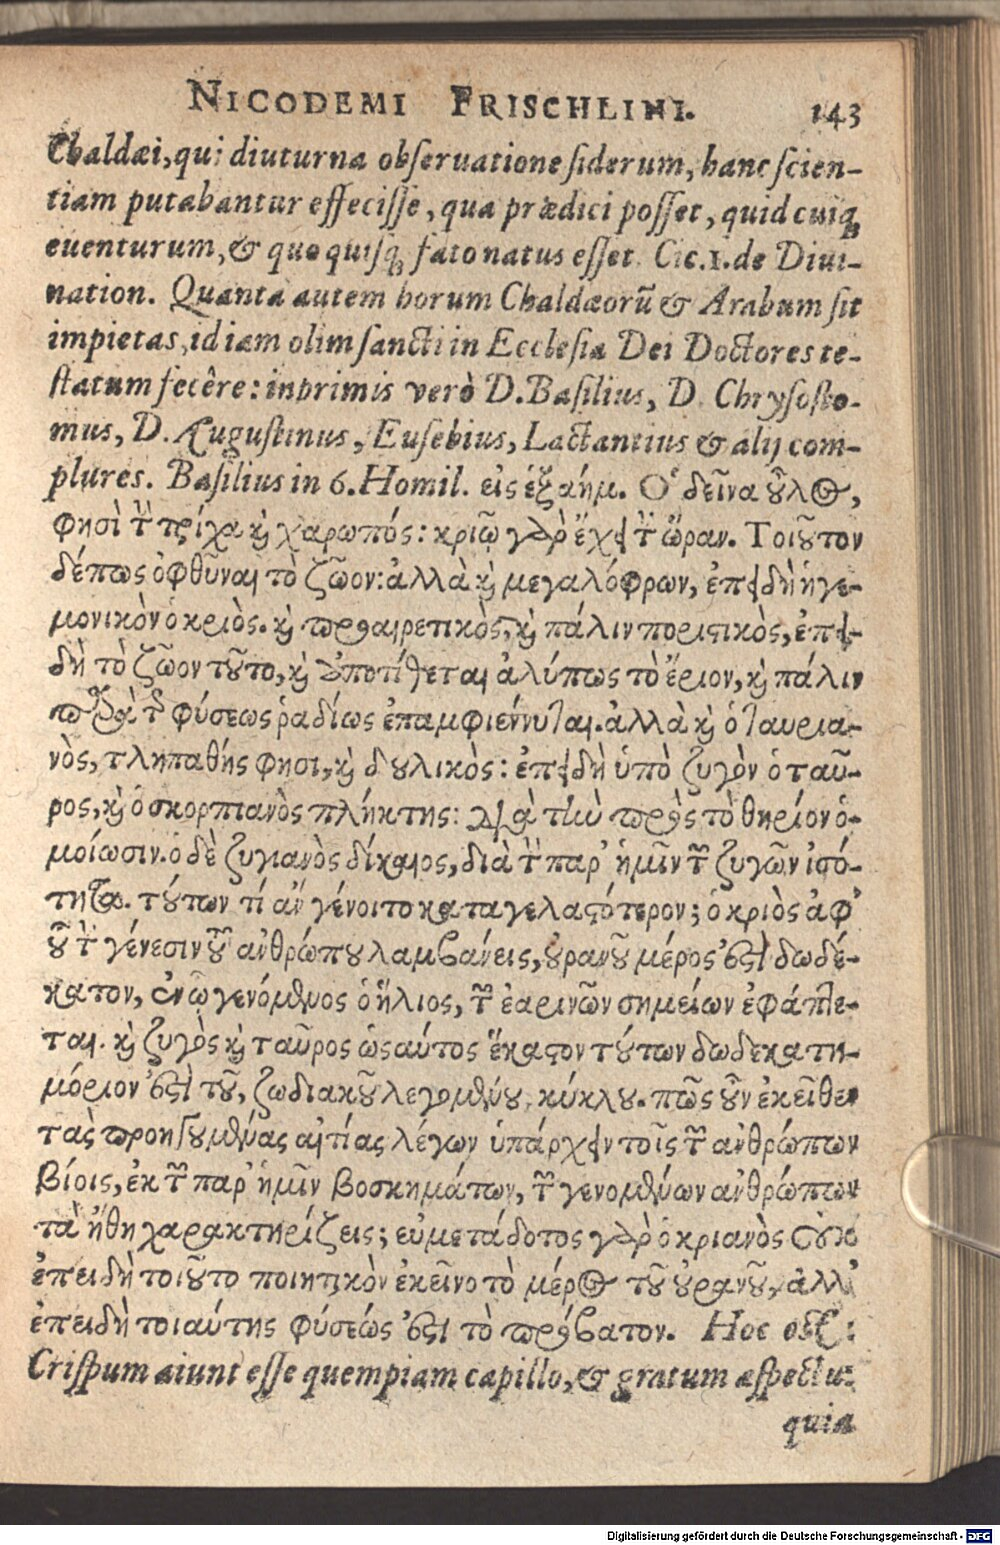 NICODEMI FRISCHLINI. 143
Chaldæi, qui diuturna obseruatione siderum, hanc scien-
tiam putabantur effecisse, qua prædici posset, quid cuiq;
euenturum, & quo quisq; fato natus esset. Cic. 1. de Diui-
nation. Quanta autem horum Chaldæorũ & Arabum sit
impietas, id iam olim sancti in Ecclesia Dei Doctores te-
statum fecêre: inprimis verò D. Basilius, D. Chrysosto-
mus, D. Augustinus, Eusebius, Lactantius & alij com-
plures. Basilius in 6. Homil. εἰς ἑξαήμ. Ὁ δεῖνα οὖλος,
φησὶ τὴν τρίχα καὶ χαρωπός: κριῷ γὰρ ἔχει τὴν ὥραν. Τοιοῦτον
δέ πως ὀφθῆναι τὸ ζῶον: ἀλλὰ καὶ μεγαλόφρων, ἐπειδὴ ἡγε-
μονικὸν ὁ κριὸς. καὶ προαιρετικὸς, καὶ πάλιν ποριστικὸς, ἐπει-
δὴ τὸ ζῶον τοῦτο, καὶ ἀποτίθεται ἀλύπως τὸ ἔριον, καὶ πάλιν
παρὰ τῆς φύσεως ῥαδίως ἐπαμφιέννυται. ἀλλὰ καὶ ὁ ταυρια-
νὸς, τληπαθής φησι, καὶ δουλικὸς: ἐπειδὴ ὑπὸ ζυγὸν ὁ ταῦ-
ρος, καὶ ὁ σκορπιανὸς πλήκτης: διὰ τὴν πρὸς τὸ θηρίον ὁ-
μοίωσιν. ὁ δὲ ζυγιανὸς δίκαιος, διὰ τὴν παρ' ἡμῖν τῶν ζυγῶν ἰσό-
τητα. τούτων τί ἂν γένοιτο καταγελαστότερον; ὁ κριὸς ἀφ'
οὗ τὴν γένεσιν τοῦ ἀνθρώπου λαμβάνεις, οὐρανοῦ μέρος ἐστὶ δωδέ-
κατον, ἐν ᾧ γενόμενος ὁ ἥλιος, τῶν ἐαρινῶν σημείων ἐφάπτε-
ται. καὶ ζυγὸς καὶ ταῦρος ὡσαύτος ἕκαστον τούτων δωδεκατη-
μόριον ἐστὶ τοῦ, ζωδιακοῦ λεγομένου, κύκλου. πῶς οὖν ἐκεῖθεν
τὰς προηγουμένας αἰτίας λέγων ὑπάρχειν τοῖς τῶν ἀνθρώπων
βίοις, ἐκ τῶν παρ' ἡμῖν βοσκημάτων, τῶν γενομένων ἀνθρώπων
τὰ ἤθη χαρακτηρίζεις; εὐμετάδοτος γὰρ ὁ κριανὸς οὐκ
ἐπειδὴ τοιοῦτο ποιητικὸν ἐκεῖνο τὸ μέρος τοῦ οὐρανοῦ, ἀλλ'
ἐπειδὴ τοιαύτης φύσεώς ἐστι τὸ πρόβατον. Hoc est:
Crispum aiunt esse quempiam capillo, & gratum aspectu:
quia
Digitalisierung gefördert durch die Deutsche Forschungsgemeinschaft - DFG